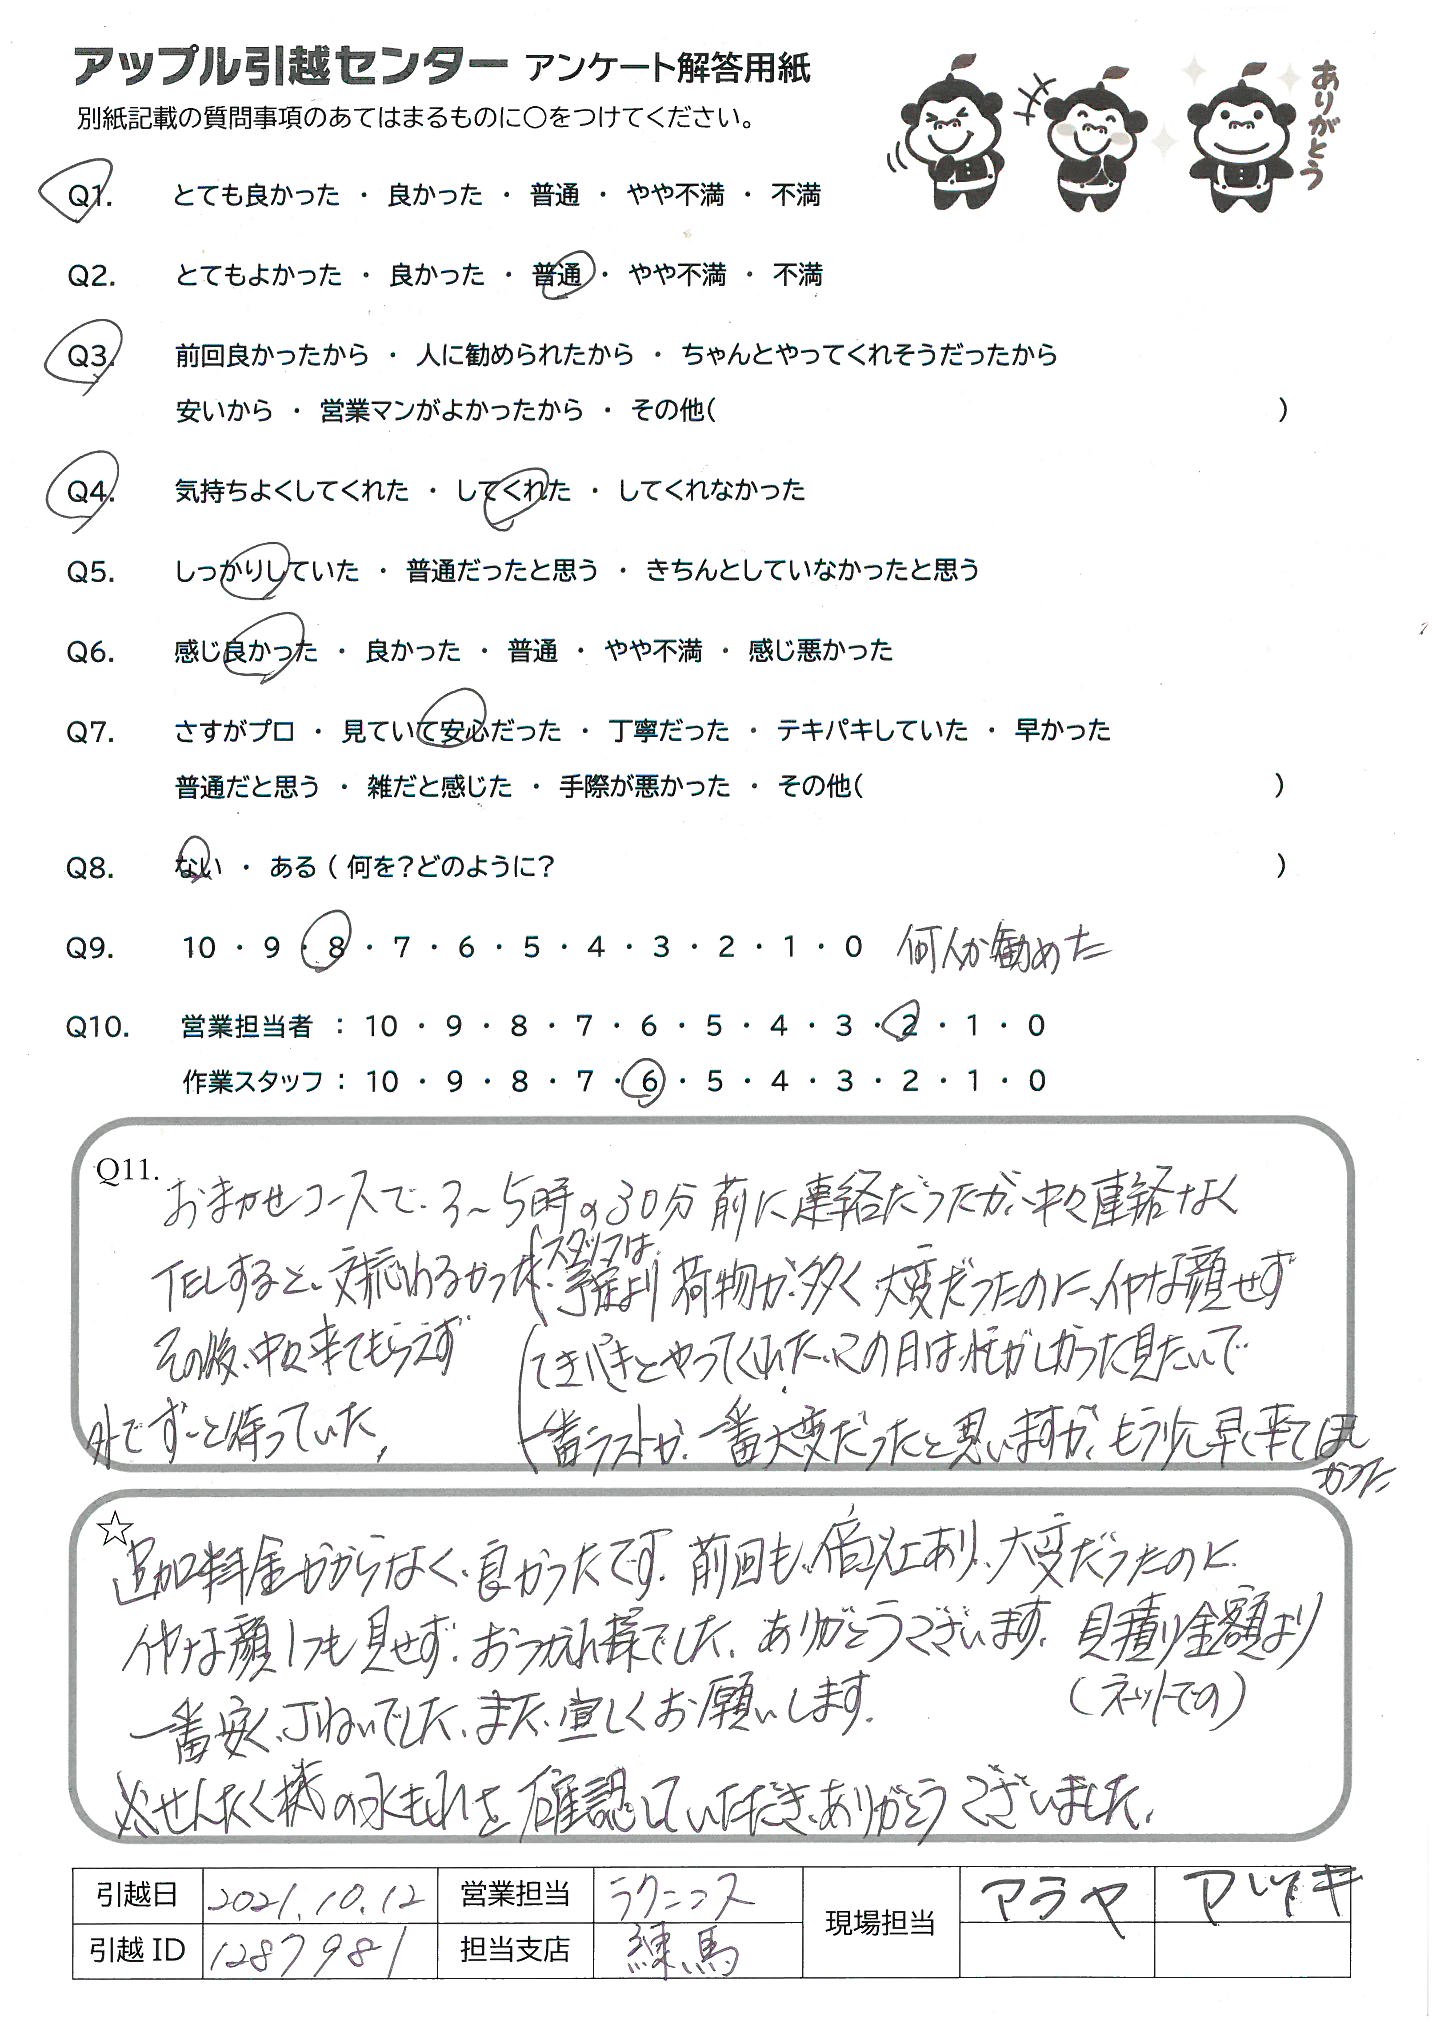 アップル引越センター アンケート解答用紙
別紙記載の質問事項のあてはまるものに○をつけてください。
ありがとう
Q1. とても良かった ・ 良かった ・ 普通 ・ やや不満 ・ 不満
Q2. とてもよかった ・ 良かった ・ 普通 ・ やや不満 ・ 不満
Q3. 前回良かったから ・ 人に勧められたから ・ ちゃんとやってくれそうだったから
安いから ・ 営業マンがよかったから ・ その他( )
Q4. 気持ちよくしてくれた ・ してくれた ・ してくれなかった
Q5. しっかりしていた ・ 普通だったと思う ・ きちんとしていなかったと思う
Q6. 感じ良かった ・ 良かった ・ 普通 ・ やや不満 ・ 感じ悪かった
Q7. さすがプロ ・ 見ていて安心だった ・ 丁寧だった ・ テキパキしていた ・ 早かった
普通だと思う ・ 雑だと感じた ・ 手際が悪かった ・ その他( )
Q8. ない ・ ある ( 何を?どのように? )
Q9. 10 ・ 9 ・ 8 ・ 7 ・ 6 ・ 5 ・ 4 ・ 3 ・ 2 ・ 1 ・ 0 何人か勧めた
Q10. 営業担当者 : 10 ・ 9 ・ 8 ・ 7 ・ 6 ・ 5 ・ 4 ・ 3 ・ 2 ・ 1 ・ 0
作業スタッフ : 10 ・ 9 ・ 8 ・ 7 ・ 6 ・ 5 ・ 4 ・ 3 ・ 2 ・ 1 ・ 0
Q11. おまかせコースで、3～5時の30分前に連絡だったが、中々連絡なく
TELすると、対応わるかった
その後、中々来てもらえず
外でず～と待っていた,
スタッフは、
予定より荷物が、多く、大変だったのに、イヤな顔せず
てきぱきとやってくれた、この日は、忙がしかった見たいで
一番ラストが、一番大変だったと思いますが、もう少し早く来てほし
かった
☆ 追加料金かからなく、良かったです。前回も、倍以上あり、大変だったのに
イヤな顔1つも見せず、おつかれ様でした。ありがとうございます。見積り金額より
(ネットでの)
一番安く、丁ねいでした、また、宜しくお願いします。
※せんたく機の水もれを確認していただき、ありがとうございました。
引越日 2021.10.12 営業担当 ラクニコス 現場担当 アラヤ アツキ
引越ID 1287981 担当支店 練馬